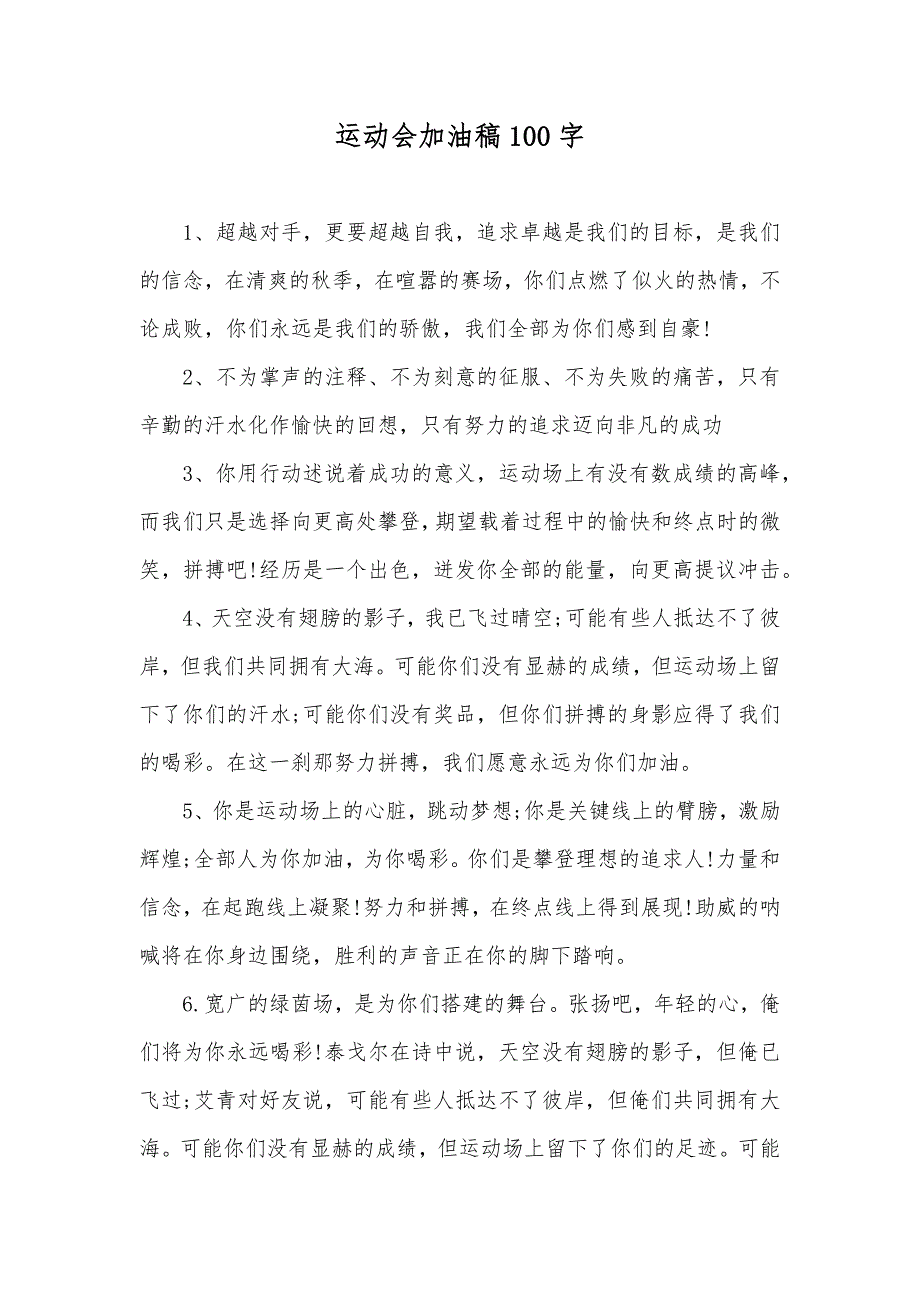 运动会加油稿100字
1、超越对手，更要超越自我，追求卓越是我们的目标，是我们
的信念，在清爽的秋季，在喧嚣的赛场，你们点燃了似火的热情，不
论成败，你们永远是我们的骄傲，我们全部为你们感到自豪!
2、不为掌声的注释、不为刻意的征服、不为失败的痛苦，只有
辛勤的汗水化作愉快的回想，只有努力的追求迈向非凡的成功
3、你用行动述说着成功的意义，运动场上有没有数成绩的高峰，
而我们只是选择向更高处攀登，期望载着过程中的愉快和终点时的微
笑，拼搏吧!经历是一个出色，迸发你全部的能量，向更高提议冲击。
4、天空没有翅膀的影子，我已飞过晴空;可能有些人抵达不了彼
岸，但我们共同拥有大海。可能你们没有显赫的成绩，但运动场上留
下了你们的汗水;可能你们没有奖品，但你们拼搏的身影应得了我们
的喝彩。在这一刹那努力拼搏，我们愿意永远为你们加油。
5、你是运动场上的心脏，跳动梦想;你是关键线上的臂膀，激励
辉煌;全部人为你加油，为你喝彩。你们是攀登理想的追求人!力量和
信念，在起跑线上凝聚!努力和拼搏，在终点线上得到展现!助威的呐
喊将在你身边围绕，胜利的声音正在你的脚下踏响。
6.宽广的绿茵场，是为你们搭建的舞台。张扬吧，年轻的心，俺
们将为你永远喝彩!泰戈尔在诗中说，天空没有翅膀的影子，但俺已
飞过;艾青对好友说，可能有些人抵达不了彼岸，但俺们共同拥有大
海。可能你们没有显赫的成绩，但运动场上留下了你们的足迹。可能